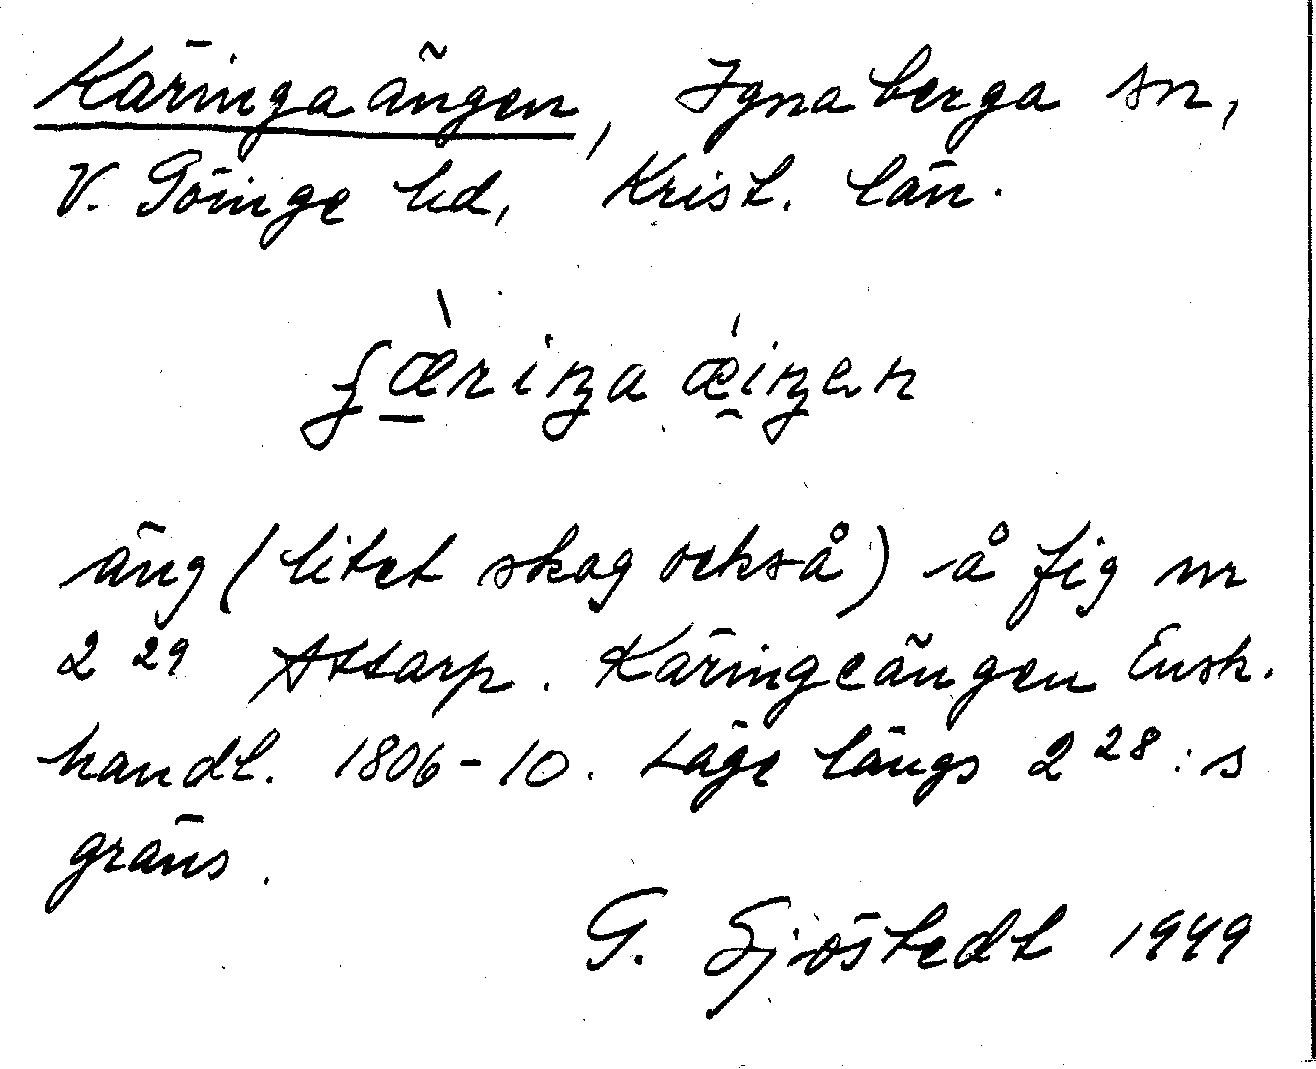 Käringaängen, Ignaberga sn,
V. Göinge hd, Krist. län.
äng (litet skog också) å fig nr
2 29 Attarp. Käringeängen Ensk.
handl. 1806-10. Läge längs 2 28:s
gräns.
G. Sjöstedt 1949